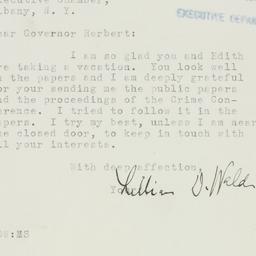 ecutive Chamber,
bany, N. Y.
EXECUTIVE DEPAR
ear Governor Herbert:
I am so glad you and Edith
re taking a vacation. You look well
n the papers and I am deeply grateful
or your sending me the public papers
nd the proceedings of the Crime Con-
erence. I tried to follow it in the
apers. I try my best, unless I am near
he closed door, to keep in touch with
ll your interests.
With deep affection,
Yo
Lillian D. Wald
:MS